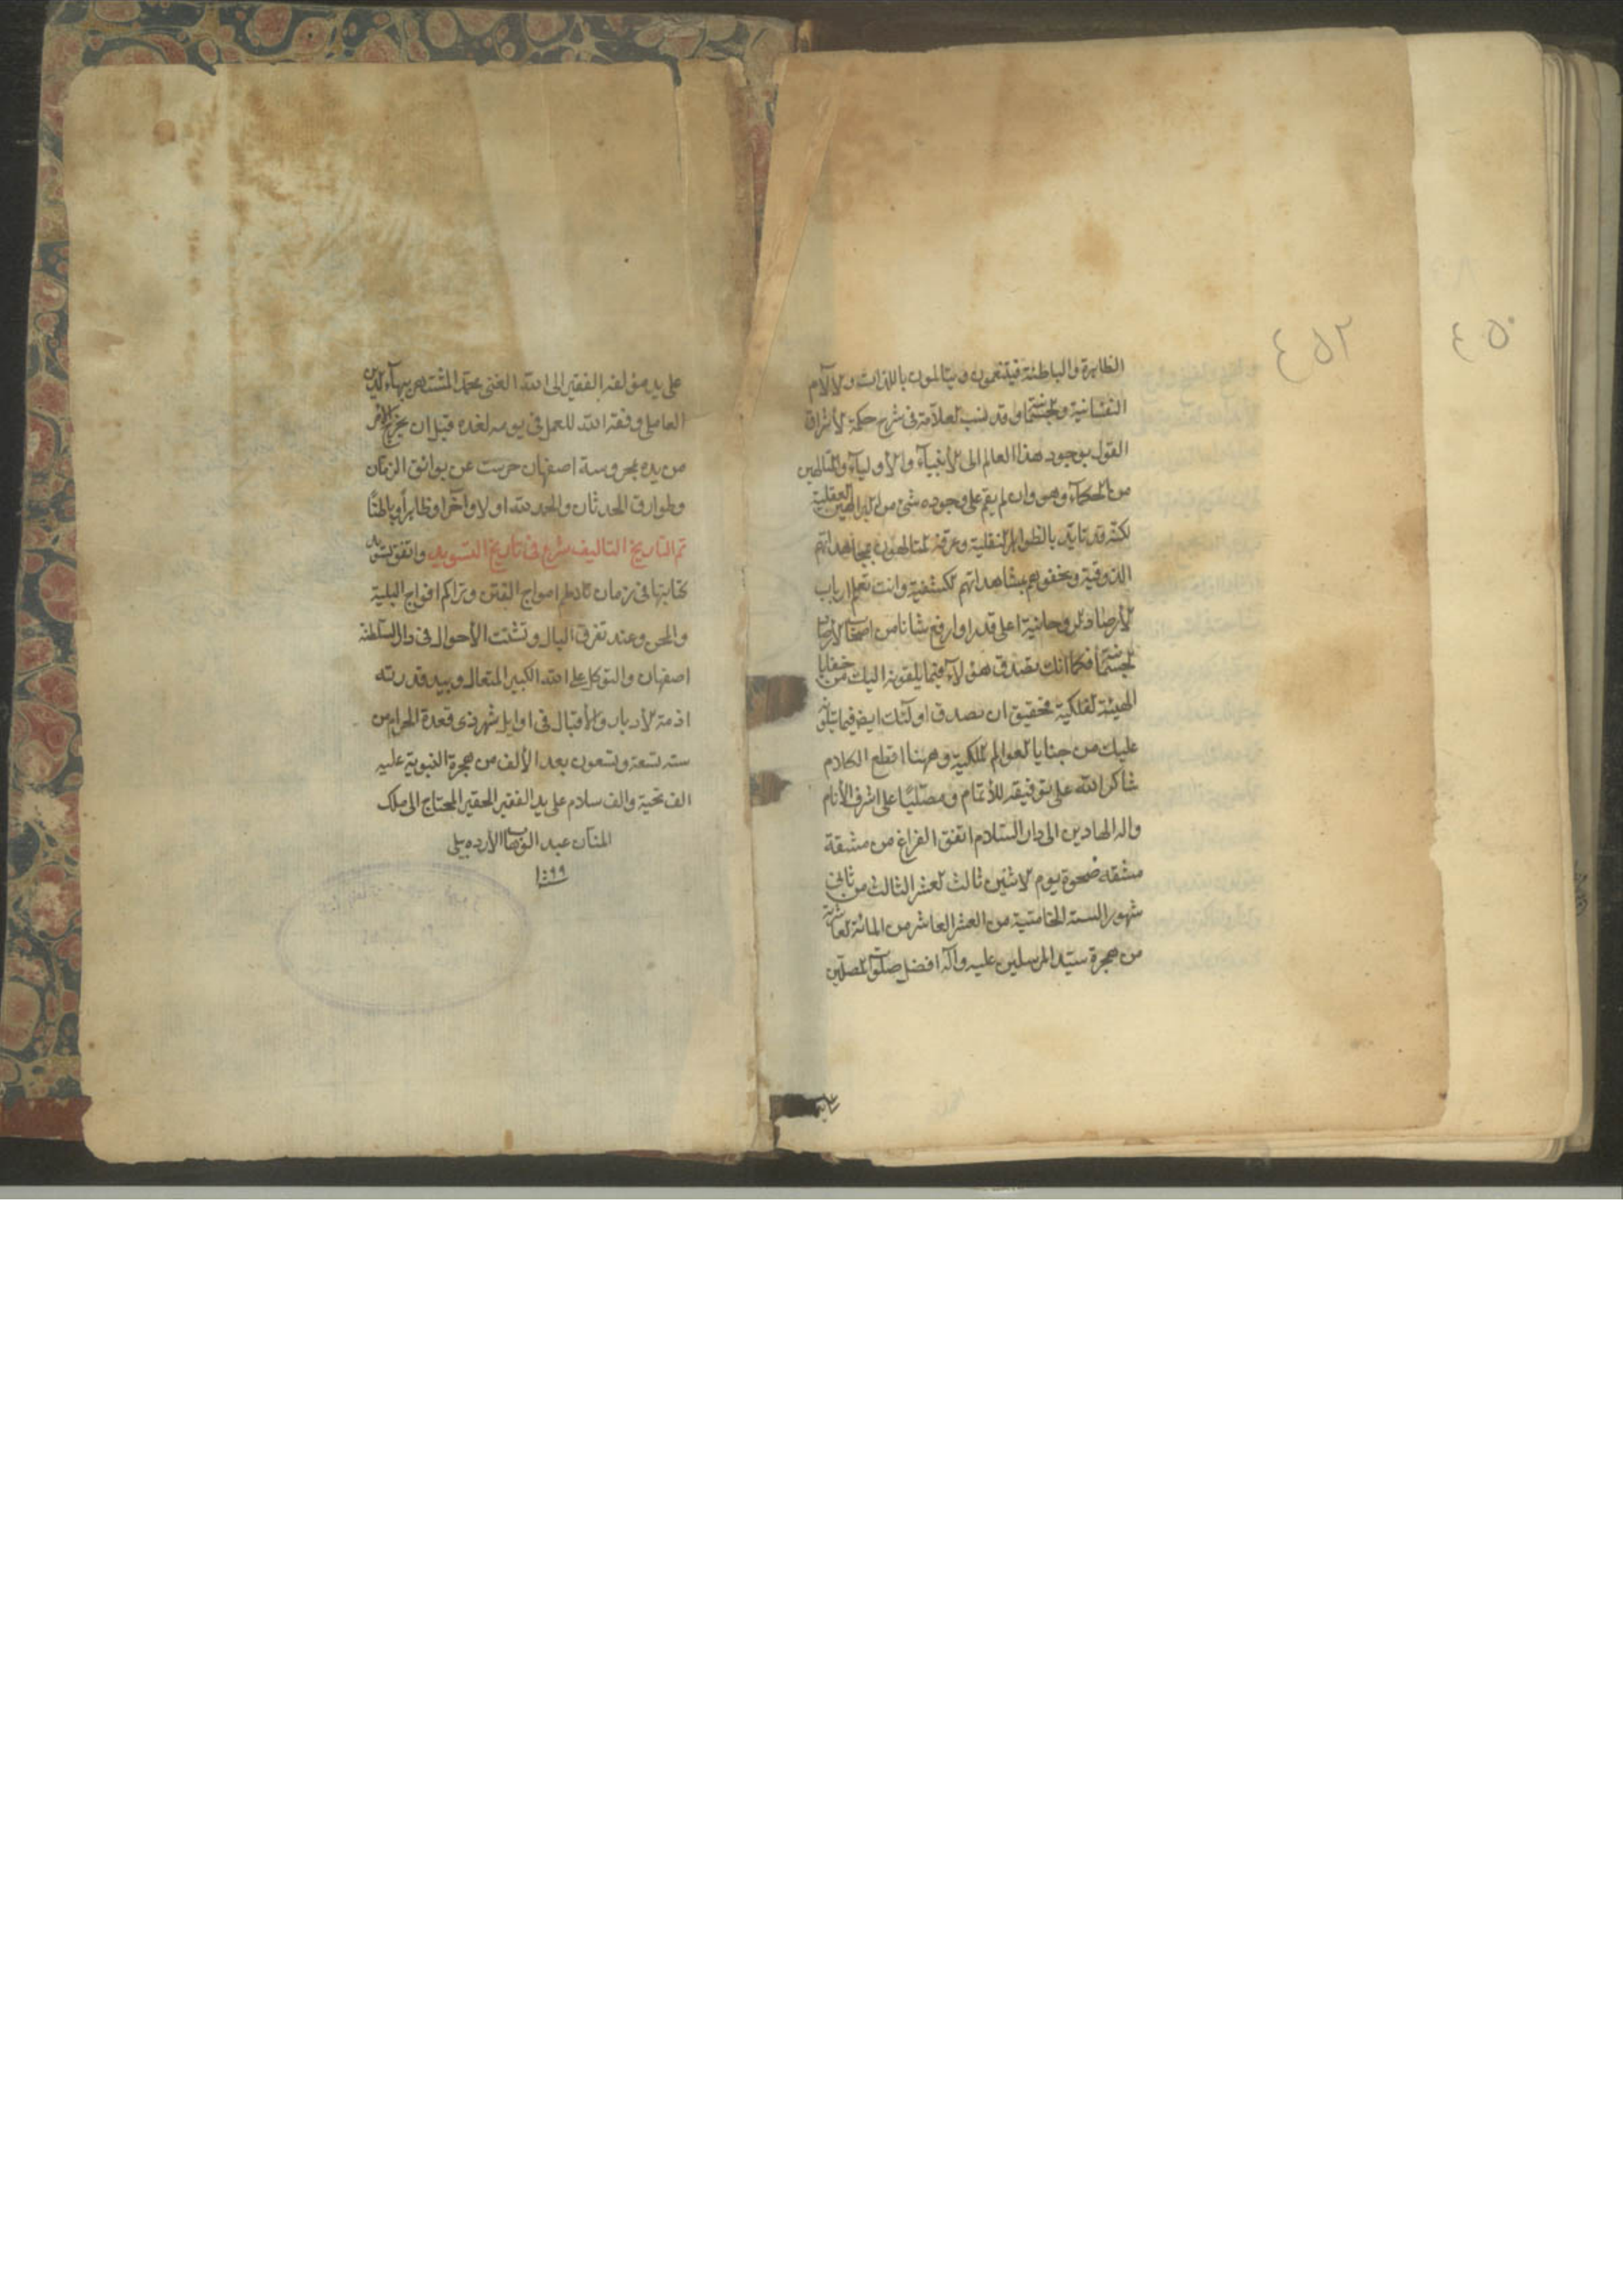 ٤٥٠
٤٥٢
الظاهرة والباطنة فيتنعمون ويتالمون باللذات والآلام
النفسانية والجسمانية وقد نسب العلامة فى شرح حكمة الاشراق
القول بوجود هذا العالم الى الانبياء والأولياء والمتالهين
من الحكماء وهو وان لم يقم على وجوده شئ من البراهين العقلية
لكنه قد تايد بالظواهر النقلية وعرفه المتالهون بمجاهداتهم
الذوقية وتحققوه بمشاهداتهم الكشفية وانت تعلم ارباب
الأرصاد الروحانية اعلى قدرا وارفع شانا من اصحاب الأرصاد
الجسمانية فكما انك تصدق هؤلاء فيما يلقونه اليك من خفايا
الهيئة الفلكية فحقيق ان تصدق اولئك ايض فيما يتلونه
عليك من خبايا العوالم الملكية وههنا اقطع الكلام
شاكرا لله على توفيقه للأتمام ومصليا على اشرف الأنام
واله الهادين الى دار السلام اتفق الفراغ من مشقة
مشقه ضحوة يوم الاثنين ثالث العشر الثالث من ثانى
شهور السنة الخامسة من العشر العاشر من المائة العاشرة
من هجرة سيد المرسلين عليه وآله افضل صلوات المصلين
على يد مؤلفه الفقير الى الله الغنى محمد المشتهر ببهاء الدين
العاملى وفقه الله للعمل فى يومه لغده قبل ان يخرج الأمر
من يده بمحروسة اصفهان حرست عن بوائق الزمان
وطوارق الحدثان والحمد لله اولا وآخرا وظاهرا وباطنا
تم التاريخ التاليف شرع فى تاريخ التسويد واتفق تسويد
كتابتها فى زمان تلاطم امواج الفتن وتراكم افواج البلية
والمحن وعند تفرق البال وتشتت الأحوال فى دار السلطنة
اصفهان والتوكل على الله الكبير المتعال وبيد قدرته
ازمة الأدبار والأقبال فى اوايل شهر ذى قعدة الحرام من
سنه تسعة وتسعون بعد الألف من هجرة النبوية عليه
الف تحية والف سلام على يد الفقير الحقير المحتاج الى ملك
المنان عبد الوهاب الأردبيلى
١٠٩٩